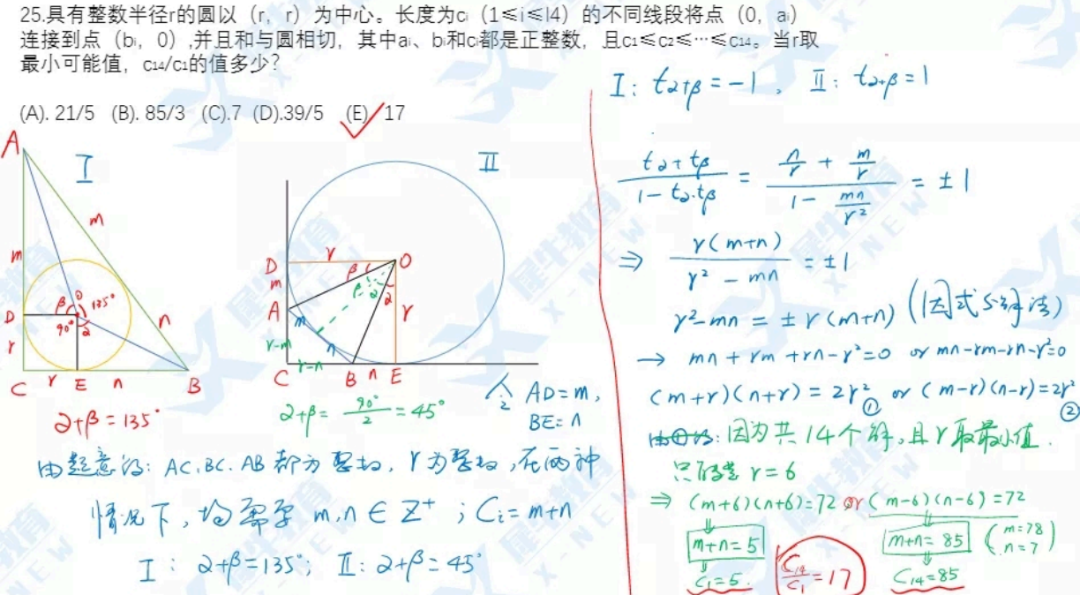 25.具有整数半径r的圆以（r，r）为中心。长度为cᵢ（1≤i≤l4）的不同线段将点（0，aᵢ）
连接到点（bᵢ，0）,并且和与圆相切，其中aᵢ、bᵢ和cᵢ都是正整数，且c₁≤c₂≤···≤c₁₄。当r取
最小可能值，c₁₄/c₁的值多少？
(A). 21/5 (B). 85/3 (C).7 (D).39/5 (E) 17
A
I
m
m
D
β
O
135°
90°
2
n
r
C
r
E
n
B
2+β=135°
II
D
r
O
m
β
β
2
2
A
m
r
r-m
n
C
r-n
B
n
E
2+β= 90°/2 =45°
令 AD=m,
BE=n
由题意得: AC.BC.AB都为整数, r为整数,在两种
情况下,均需要 m,n∈Z⁺ ; Cᵢ=m+n
I: 2+β=135°; II: 2+β=45°
I: t2+β=-1, II: t2+β=1
(t2+tβ)/(1-t2·tβ) = (n/r + m/r)/(1 - mn/r²) = ±1
⇒ r(m+n)/(r²-mn) = ±1
r²-mn=±r(m+n) (因式分解法)
→ mn+rm+rn-r²=0 or mn-rm-rn-r²=0
(m+r)(n+r)=2r² ① or (m-r)(n-r)=2r² ②
因为共14个解,且r取最小值.
只能是 r=6
⇒ (m+6)(n+6)=72 or (m-6)(n-6)=72
m+n=5
m+n=85 (m=78
n=7)
C₁=5.
C₁₄/C₁=17
C₁₄=85
犀牛教育
X-NEW